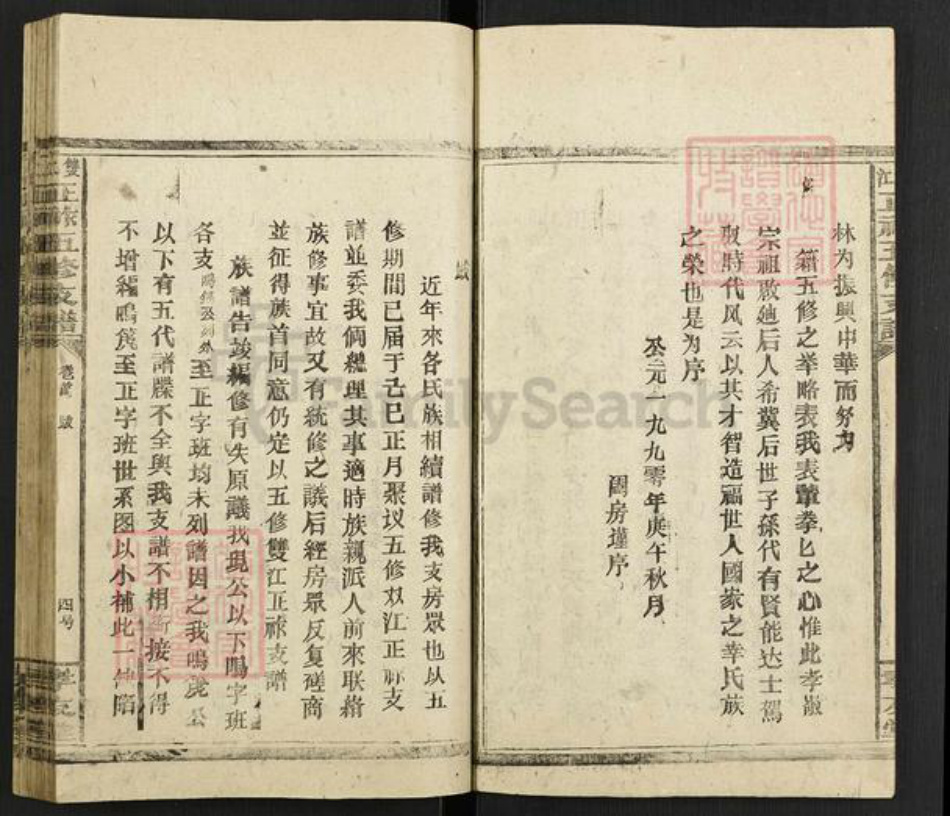 林为振興中華而努力
籍五修之举略表我表輩拳匕之心惟此孝嚴
宗祖啟廸后人希冀后世子孫代有賢能达士駕
馭時代风云以其才智造福世人國家之幸氏族
之榮也是为序
公元一九九零年庚午秋月
閣房謹序
跋
近年來各氏族相續譜修我支房眾也以五
修期間已届于己巳正月聚议五修双江正祘支
譜並委我倆總理其事適時族親派人前來联緒
族修事宜故又有統修之議后經房眾反复磋商
並征得族首同意仍定以五修雙江正祘支譜
族譜告竣編修有失原議找現公以下鳴字班
各支至正字班均未列譜因之我鳴
以下有五代譜牒不全與我支譜不相接不得
不增編鳴篪至正字班世系图以小補此一
雙江正祘五修支譜
卷首 跋
四号
江正祘五修支譜
FamilySearch